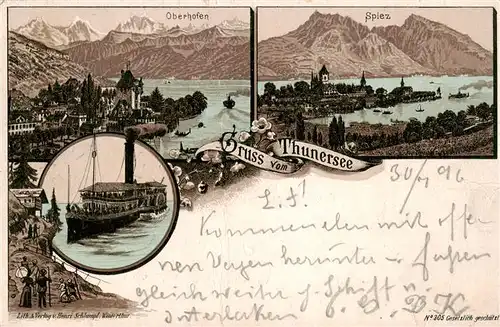 Oberhofen
Spiez
Gruss vom Thunersee
30/7 96
L. F.!
Kommen eben mit offe
nen Augen herunter – fahren
gleich weiter p. Schiff n.
Interlaken
Lith. & Verlag v. Henri Schlumpf, Winterthur
Nº 205 Gesetzlich geschützt